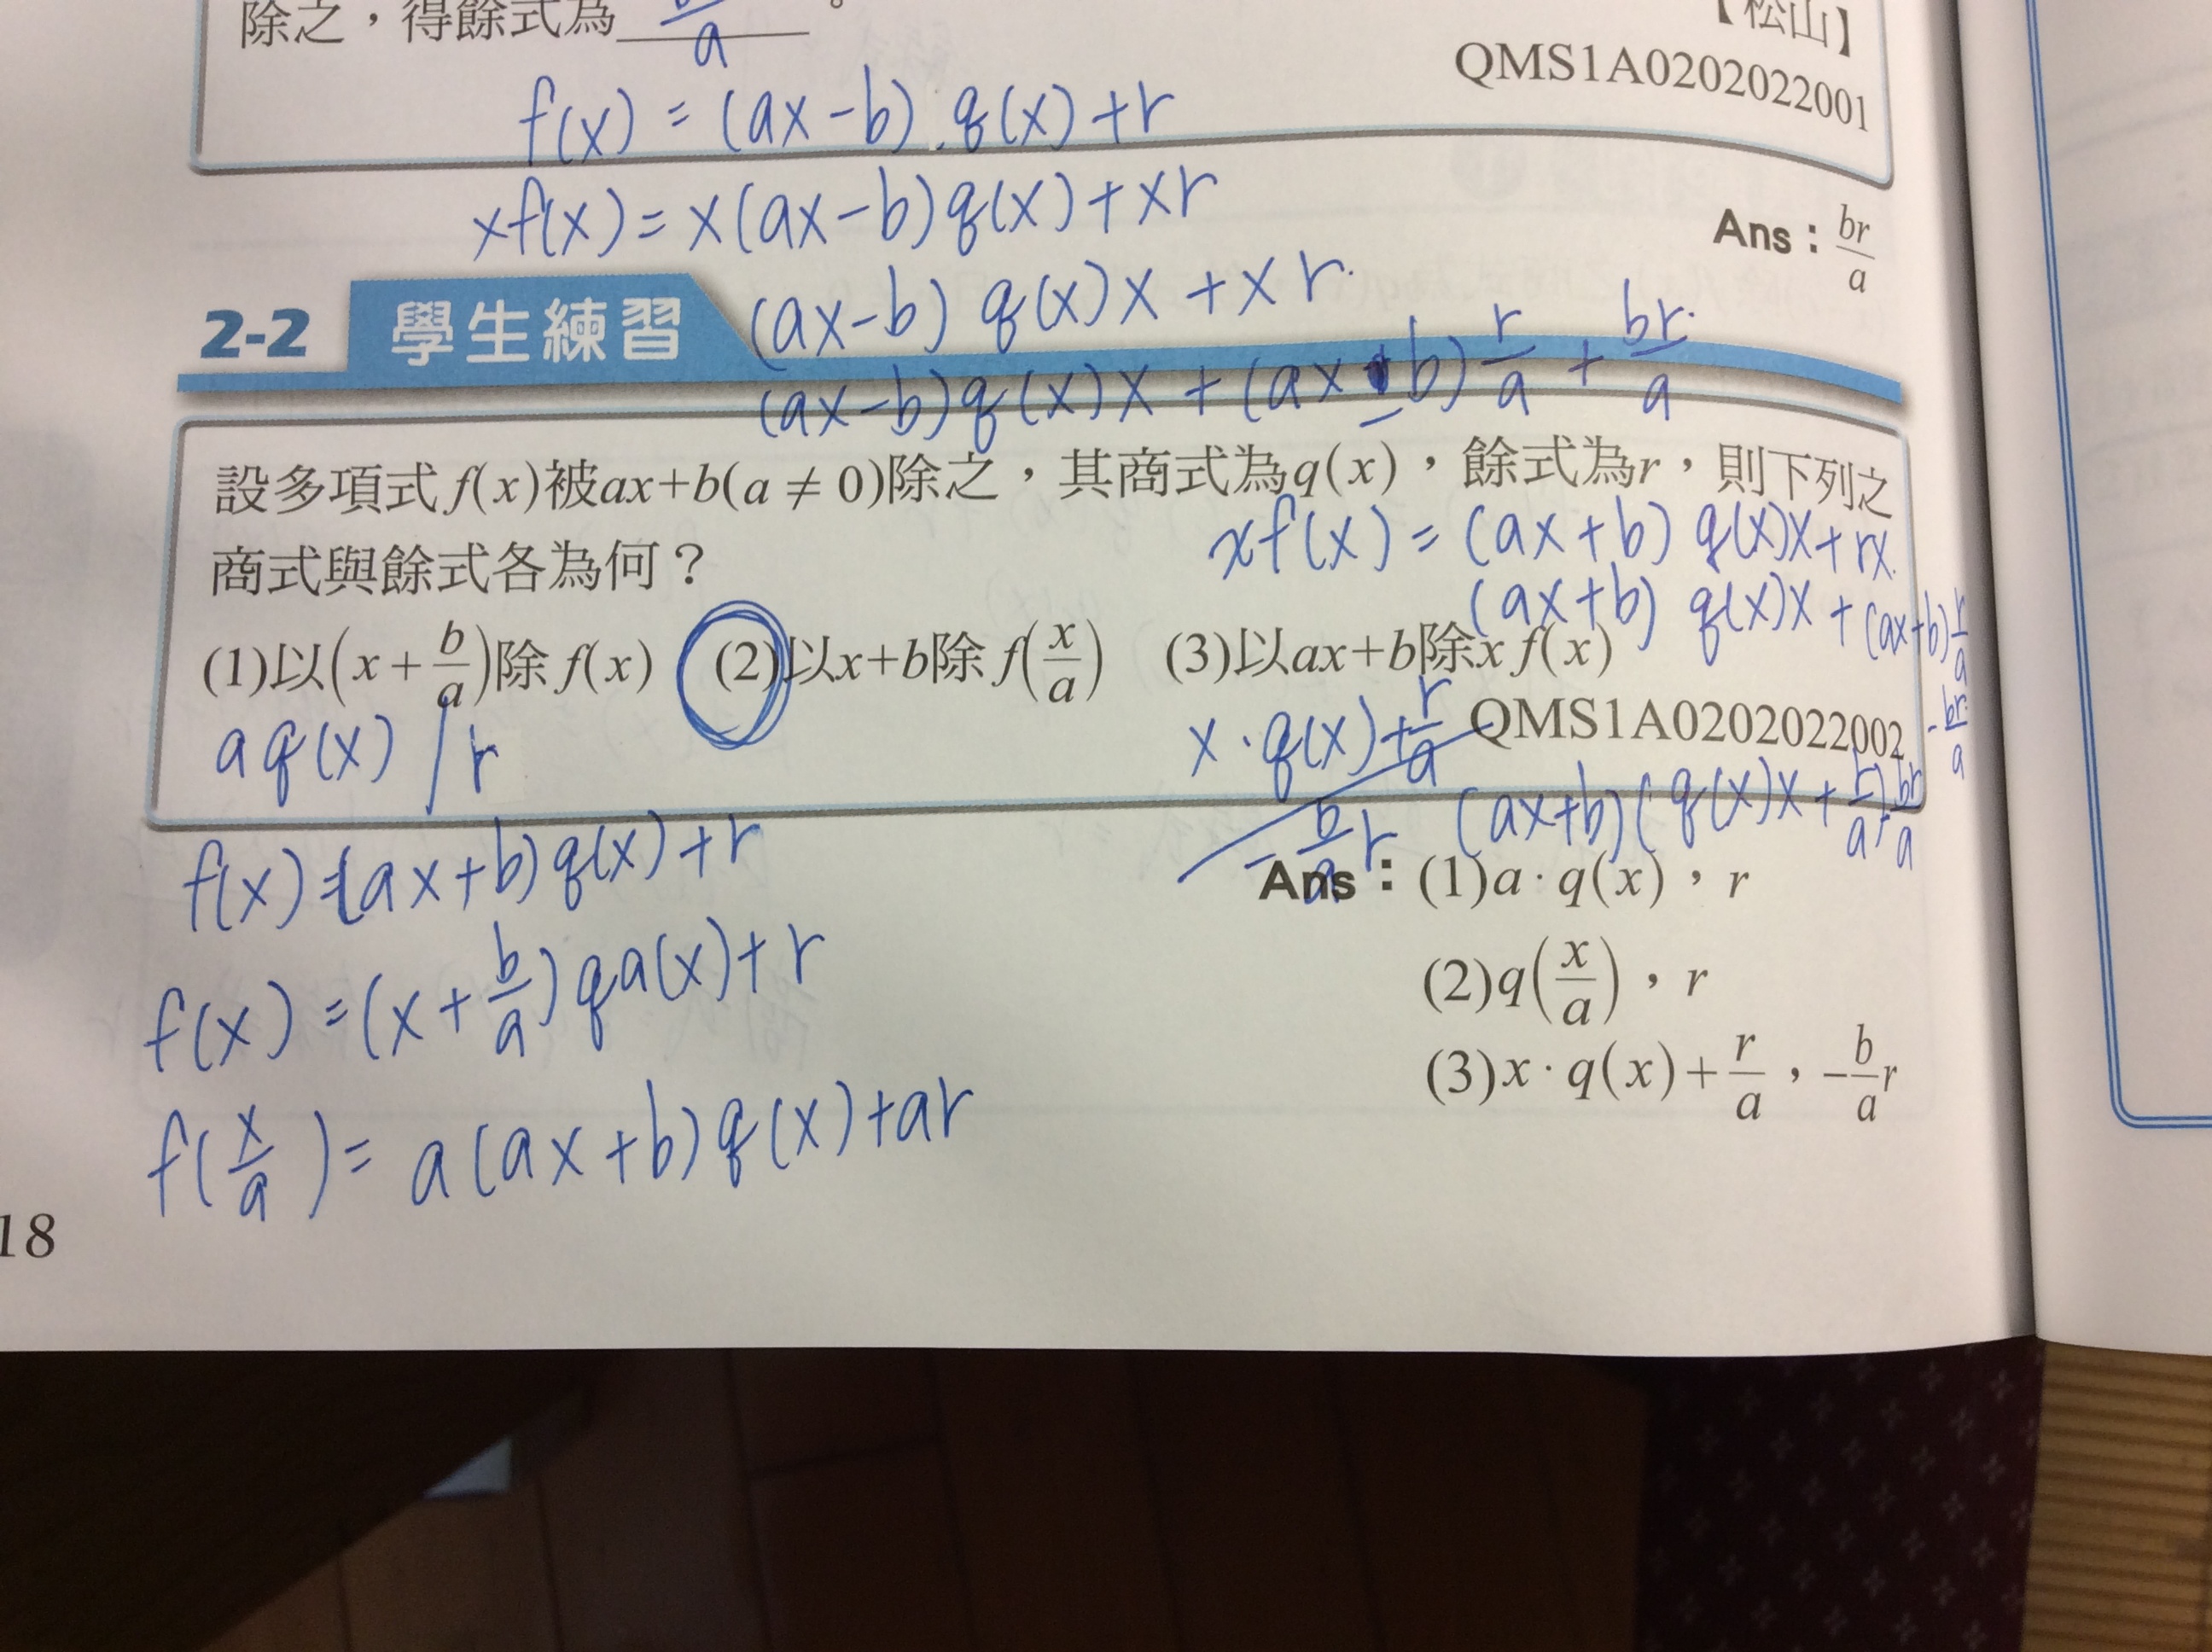 除之，得餘式為 a 。
【松山】
QMS1A0202022001
f(x) = (ax-b).q(x)+r
xf(x) = x(ax-b)q(x)+xr
Ans：br/a
2-2 學生練習
(ax-b) q(x)x + xr.
(ax-b)q(x)x + (ax-b) r/a + br/a
設多項式f(x)被ax+b(a ≠ 0)除之，其商式為q(x)，餘式為r，則下列之
商式與餘式各為何？
xf(x) = (ax+b) q(x)x+rx.
(ax+b) q(x)x + (ax+b) r/a - br/a
(1)以(x + b/a)除 f(x) (2)以x+b除 f(x/a) (3)以ax+b除x f(x)
QMS1A0202022002
aq(x) / r
x·q(x)+r/a
-b/a r
(ax+b)(q(x)x + r/a)-br/a
f(x)=(ax+b)q(x)+r
f(x)=(x+b/a)qa(x)+r
f(x/a)= a(ax+b)q(x)+ar
Ans：(1)a·q(x)，r
(2)q(x/a)，r
(3)x·q(x)+r/a，-b/a r
18